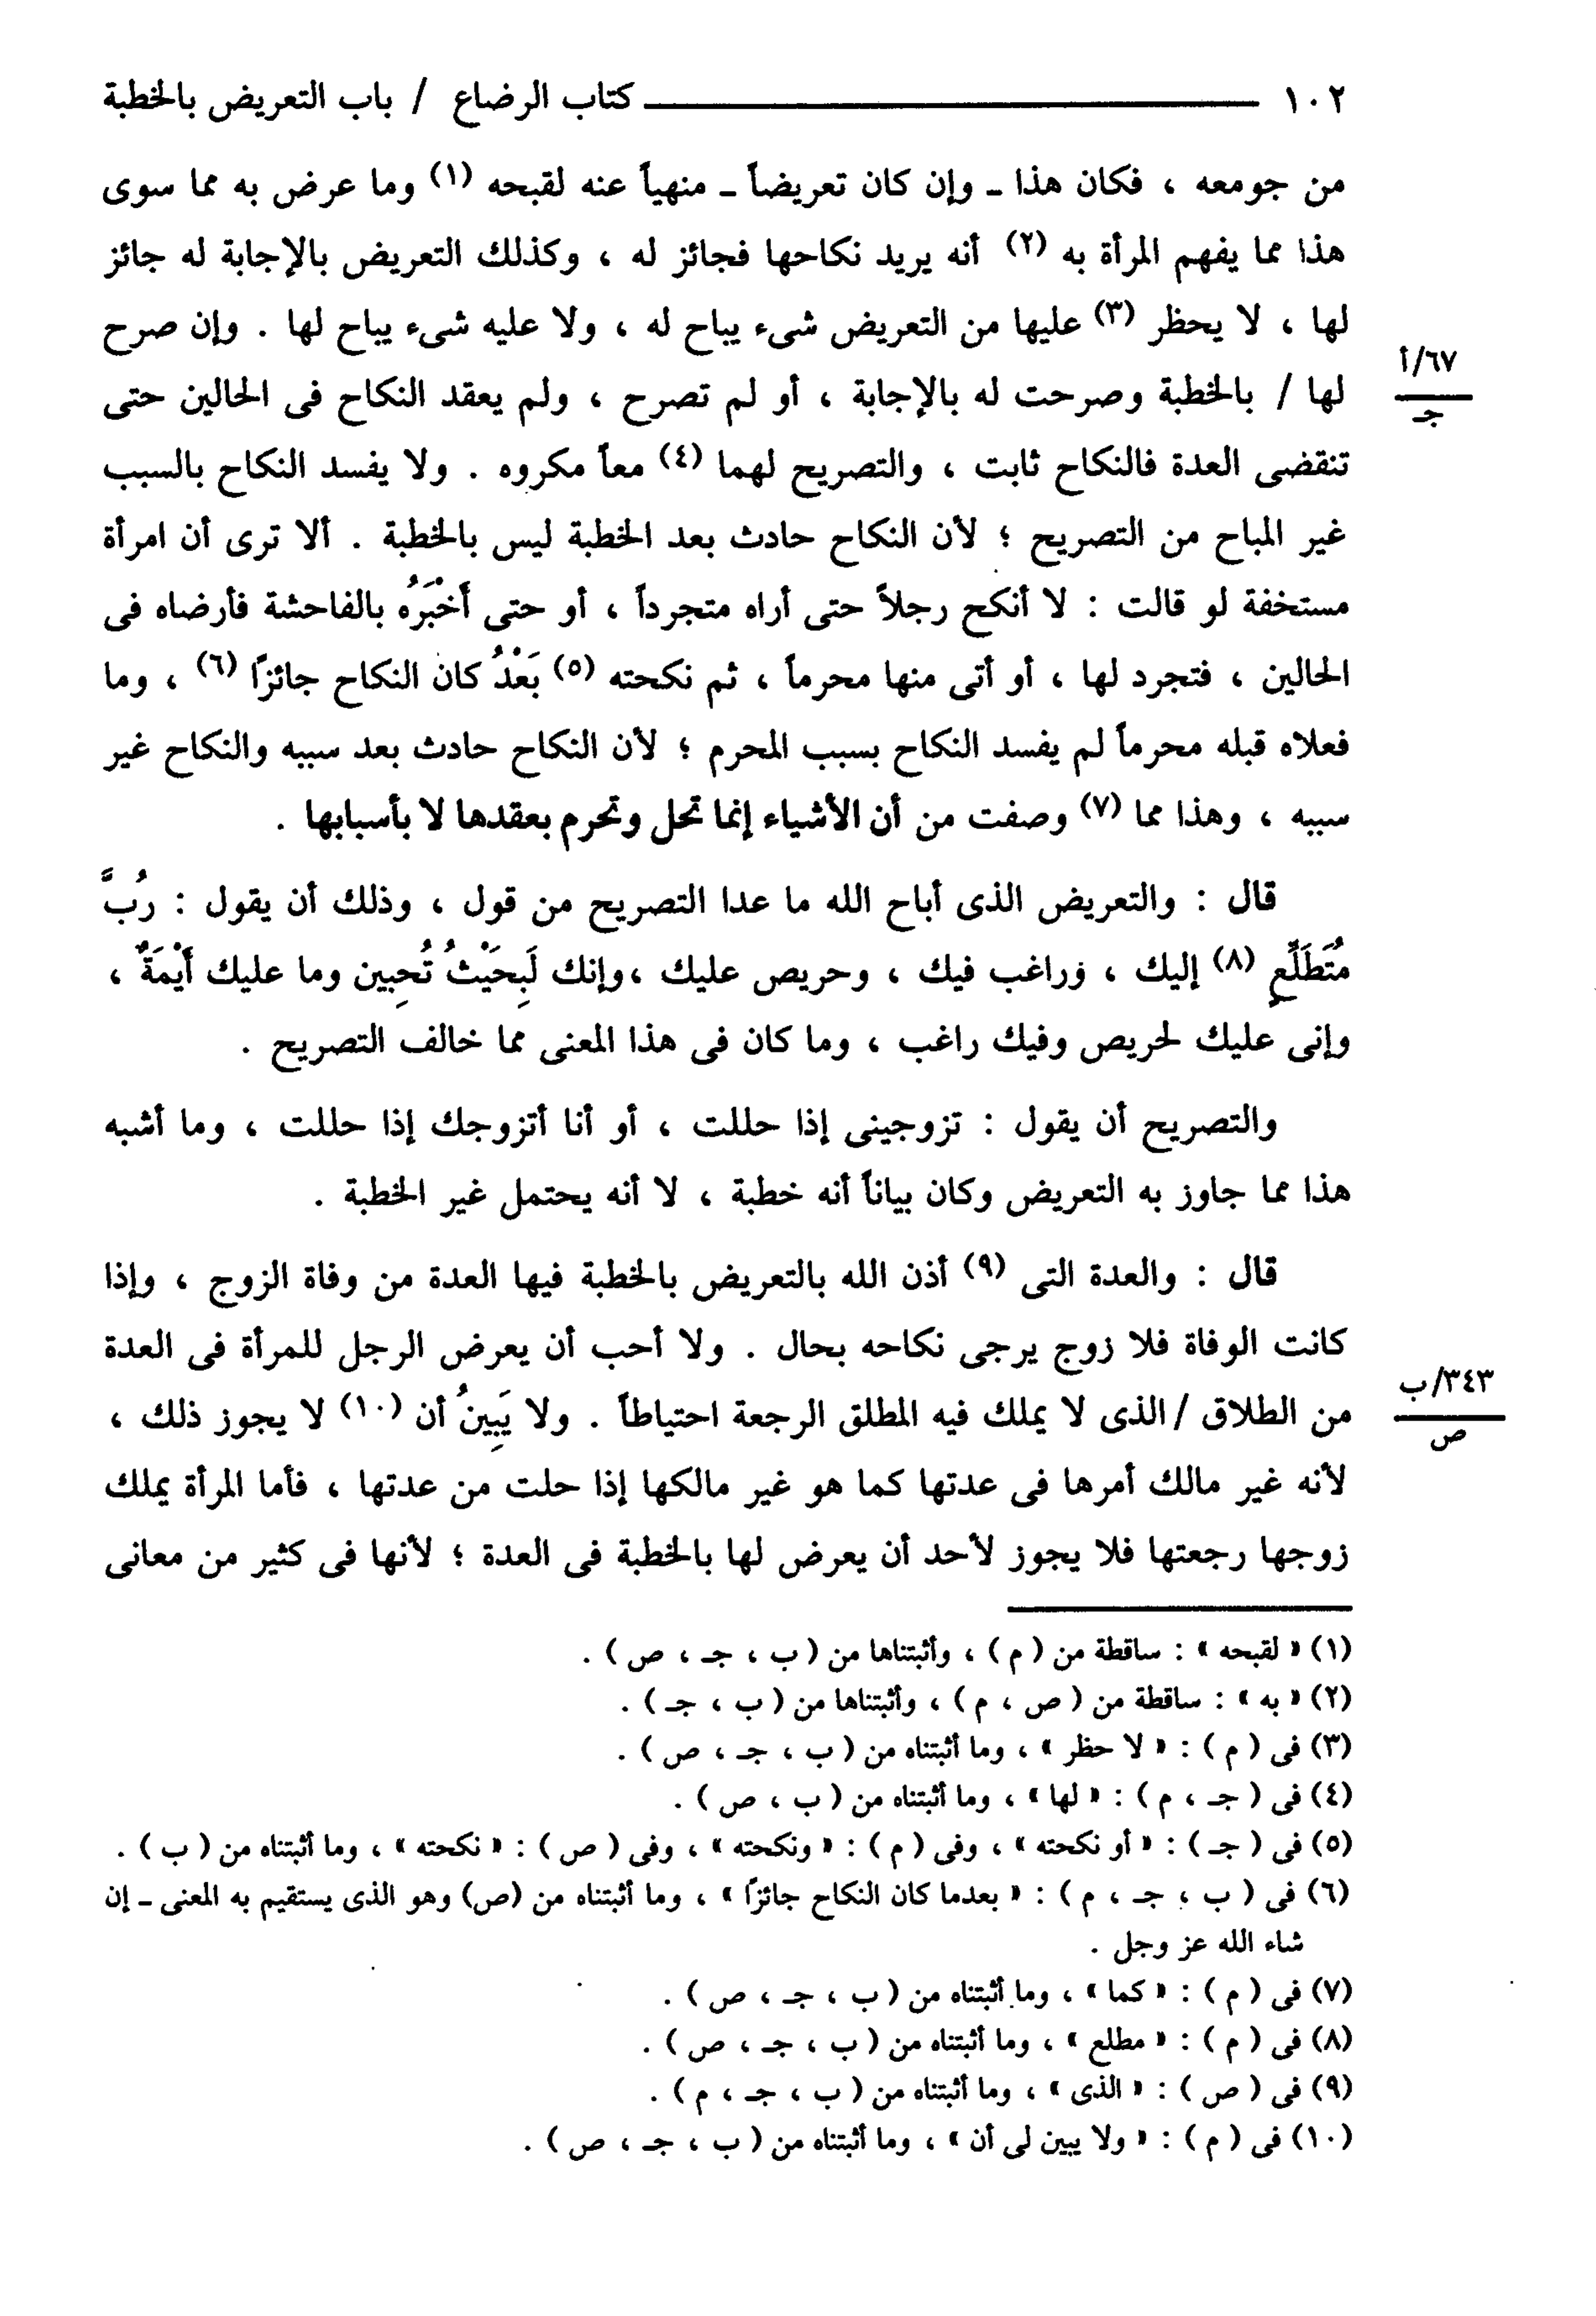 ١٠٢ ــــــــــــــــــــ كتاب الرضاع / باب التعريض بالخطبة
من جومعه ، فكان هذا ـ وإن كان تعريضاً ـ منهياً عنه لقبحه (١) وما عرض به مما سوى
هذا مما يفهم المرأة به (٢) أنه يريد نكاحها فجائز له ، وكذلك التعريض بالإجابة له جائز
لها ، لا يحظر (٣) عليها من التعريض شىء يباح له ، ولا عليه شىء يباح لها . وإن صرح
٦٧/أ
جـ
لها / بالخطبة وصرحت له بالإجابة ، أو لم تصرح ، ولم يعقد النكاح فى الحالين حتى
تنقضى العدة فالنكاح ثابت ، والتصريح لهما (٤) معاً مكروه . ولا يفسد النكاح بالسبب
غير المباح من التصريح ؛ لأن النكاح حادث بعد الخطبة ليس بالخطبة . ألا ترى أن امرأة
مستخفة لو قالت : لا أنكح رجلاً حتى أراه متجرداً ، أو حتى أَخْبَرُه بالفاحشة فأرضاه فى
الحالين ، فتجرد لها ، أو أتى منها محرماً ، ثم نكحته (٥) بَعْدُ كان النكاح جائزاً (٦) ، وما
فعلاه قبله محرماً لم يفسد النكاح بسبب المحرم ؛ لأن النكاح حادث بعد سببه والنكاح غير
سببه ، وهذا مما (٧) وصفت من أن الأشياء إنما تحل وتحرم بعقدها لا بأسبابها .
قال : والتعريض الذى أباح الله ما عدا التصريح من قول ، وذلك أن يقول : رُبَّ
مُتَطَلِّعٍ (٨) إليك ، وراغب فيك ، وحريص عليك ، وإنك لَبِحَيْثُ تُحِبين وما عليك أَيْمَةٌ ،
وإنى عليك لحريص وفيك راغب ، وما كان فى هذا المعنى مما خالف التصريح .
والتصريح أن يقول : تزوجينى إذا حللت ، أو أنا أتزوجك إذا حللت ، وما أشبه
هذا مما جاوز به التعريض وكان بياناً أنه خطبة ، لا أنه يحتمل غير الخطبة .
قال : والعدة التى (٩) أذن الله بالتعريض بالخطبة فيها العدة من وفاة الزوج ، وإذا
كانت الوفاة فلا زوج يرجى نكاحه بحال . ولا أحب أن يعرض الرجل للمرأة فى العدة
٣٤٣/ب
ص
من الطلاق / الذى لا يملك فيه المطلق الرجعة احتياطاً . ولا يَبِينُ أن (١٠) لا يجوز ذلك ،
لأنه غير مالك أمرها فى عدتها كما هو غير مالكها إذا حلت من عدتها ، فأما المرأة يملك
زوجها رجعتها فلا يجوز لأحد أن يعرض لها بالخطبة فى العدة ؛ لأنها فى كثير من معانى
(١) « لقبحه » : ساقطة من ( م ) ، وأثبتناها من ( ب ، جـ ، ص ) .
(٢) « به » : ساقطة من ( ص ، م ) ، وأثبتناها من ( ب ، جـ ) .
(٣) فى ( م ) : « لا حظر » ، وما أثبتناه من ( ب ، جـ ، ص ) .
(٤) فى ( جـ ، م ) : « لها » ، وما أثبتناه من ( ب ، ص ) .
(٥) فى ( جـ ) : « أو نكحته » ، وفى ( م ) : « ونكحته » ، وفى ( ص ) : « نكحته » ، وما أثبتناه من ( ب ) .
(٦) فى ( ب ، جـ ، م ) : « بعدما كان النكاح جائزاً » ، وما أثبتناه من (ص) وهو الذى يستقيم به المعنى ـ إن
شاء الله عز وجل .
(٧) فى ( م ) : « كما » ، وما أثبتناه من ( ب ، جـ ، ص ) .
(٨) فى ( م ) : « مطلع » ، وما أثبتناه من ( ب ، جـ ، ص ) .
(٩) فى ( ص ) : « الذى » ، وما أثبتناه من ( ب ، جـ ، م ) .
(١٠) فى ( م ) : « ولا يبين لى أن » ، وما أثبتناه من ( ب ، جـ ، ص ) .